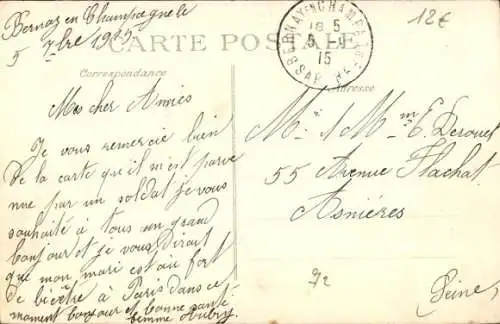 Bernay en Champagne le
5 7bre 1915
CARTE POSTALE
Correspondance
Adresse
BERNAY EN CHAMPAGNE
18 5
5 -9
15
SARTHE
12€
Mes cher Amies
Je vous remercie bien
de la carte qu'il m'est parve
nue par un soldat je vous
souhaite à tous un grand
bonjour et je vous dirait
que mon mari est au fort
de bicêtre à Paris dans ce
moment bonjour et bonne santé
femme Aubry
M. & Mme E. Derouel
55 Avenue Flachat
Asnières
Seine
92